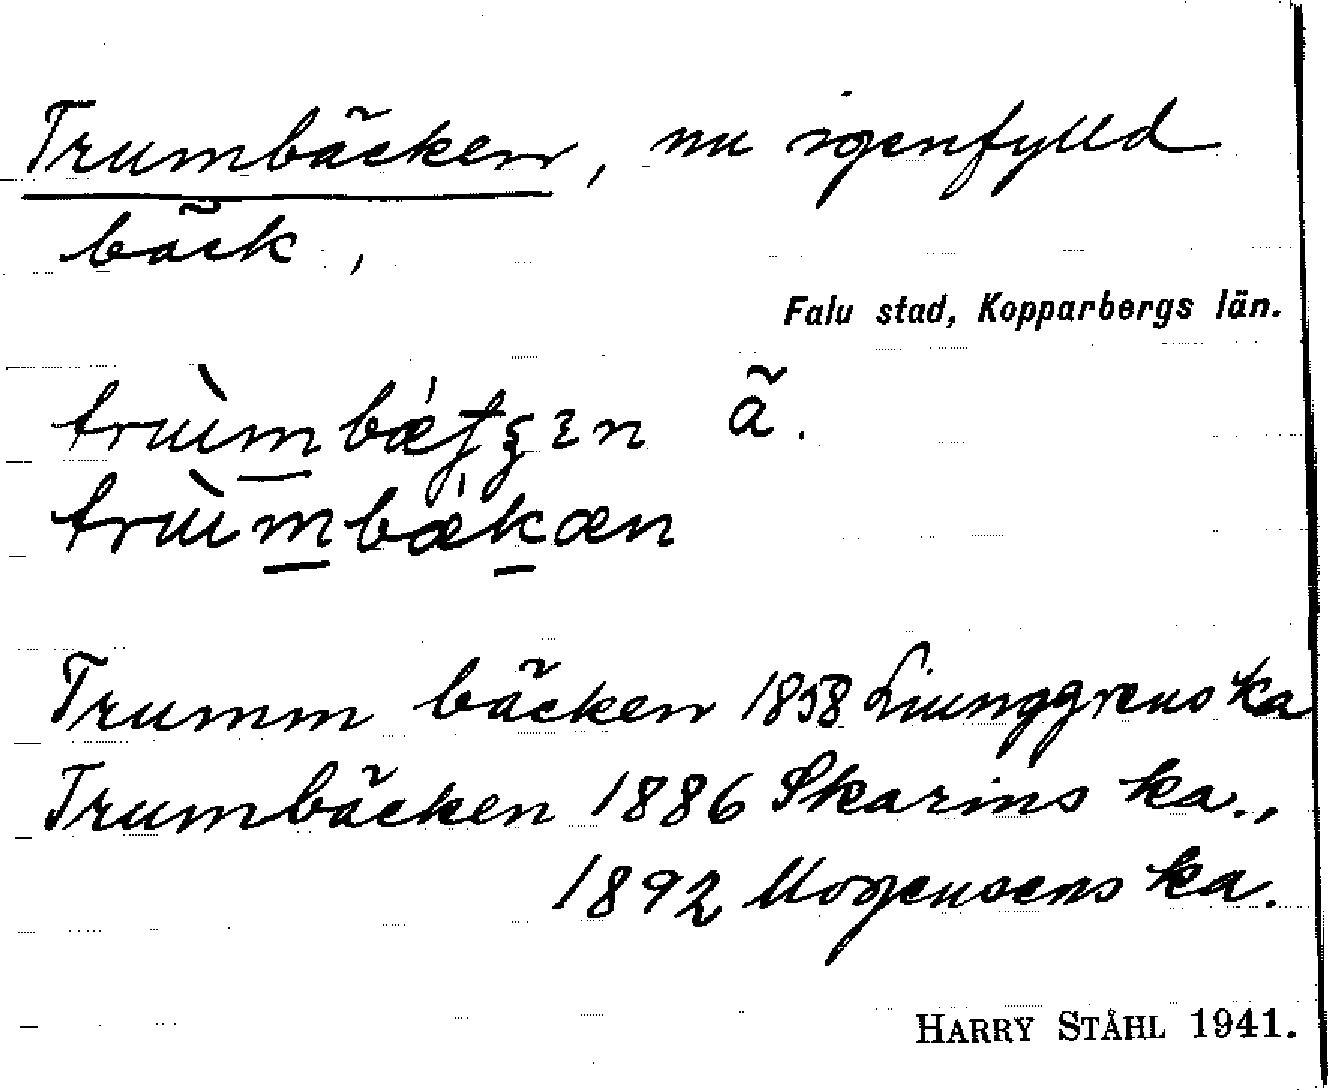 Trumbäcken, nu igenfylld
bäck,
Falu stad, Kopparbergs län.
ä.
trùmbǽkæn
Trumm bäcken 1858 Ljunggrens ka
Trumbäcken 1886 Skarins ka.,
1892 Mogensens ka.
HARRY STÅHL 1941.